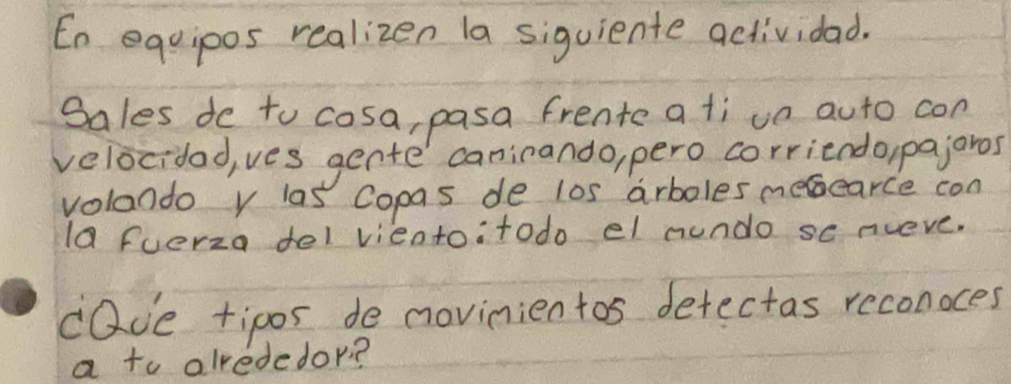 En equipos realizen la siguiente actividad.
Sales de tu casa, pasa frente a ti un auto con
velocidad, ves gente caminando, pero corriendo, pajaros
volando y las copas de los árboles mecearce con
la fuerza del viento: todo el mundo se mueve.
¿Qué tipos de movimientos detectas reconoces
a tu alrededor?